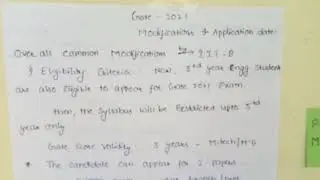 Gate - 2021
Modifications & Application date:
Over all Common Modification
Eligibility Criteria: Now, 3rd year Engg Student
are also Eligible to appear for Gate 2021 Exam
then, the Syllabus will be Restricted upto 3rd
year only
Gate Score Validity 3 years - M.tech/M.E
* The candidate can appear for 2 papers
P
M